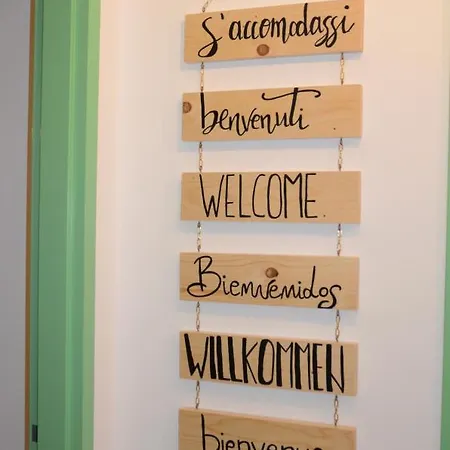 S'accomodassi
benvenuti
WELCOME.
Bienvenidos
WILLKOMMEN
bienvenue